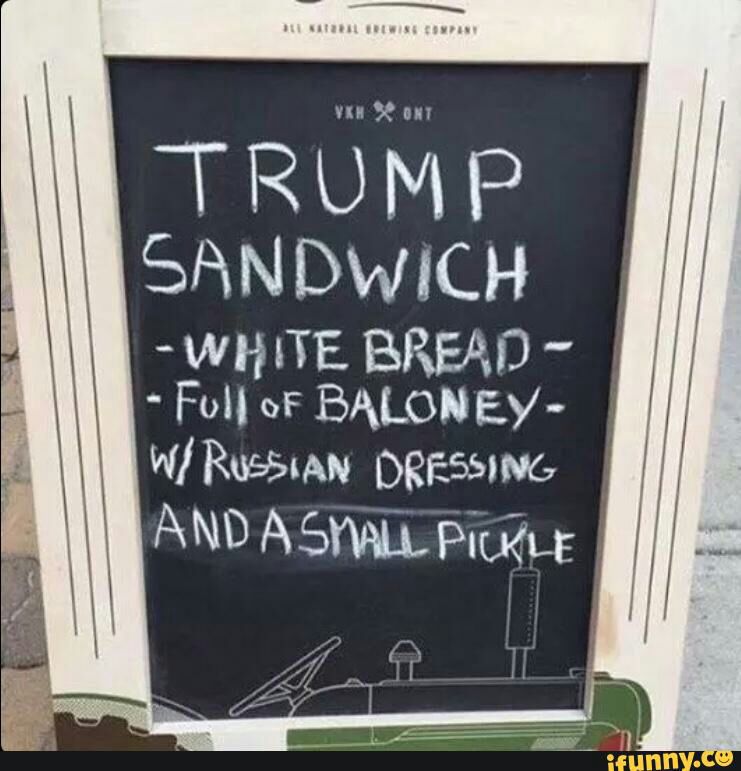 ALL NATURAL BREWING COMPANY
VKH ONT
TRUMP
SANDWICH
-WHITE BREAD-
-Full OF BALONEY-
W/ RUSSIAN DRESSING
AND A SMALL PICKLE
ifunny.co